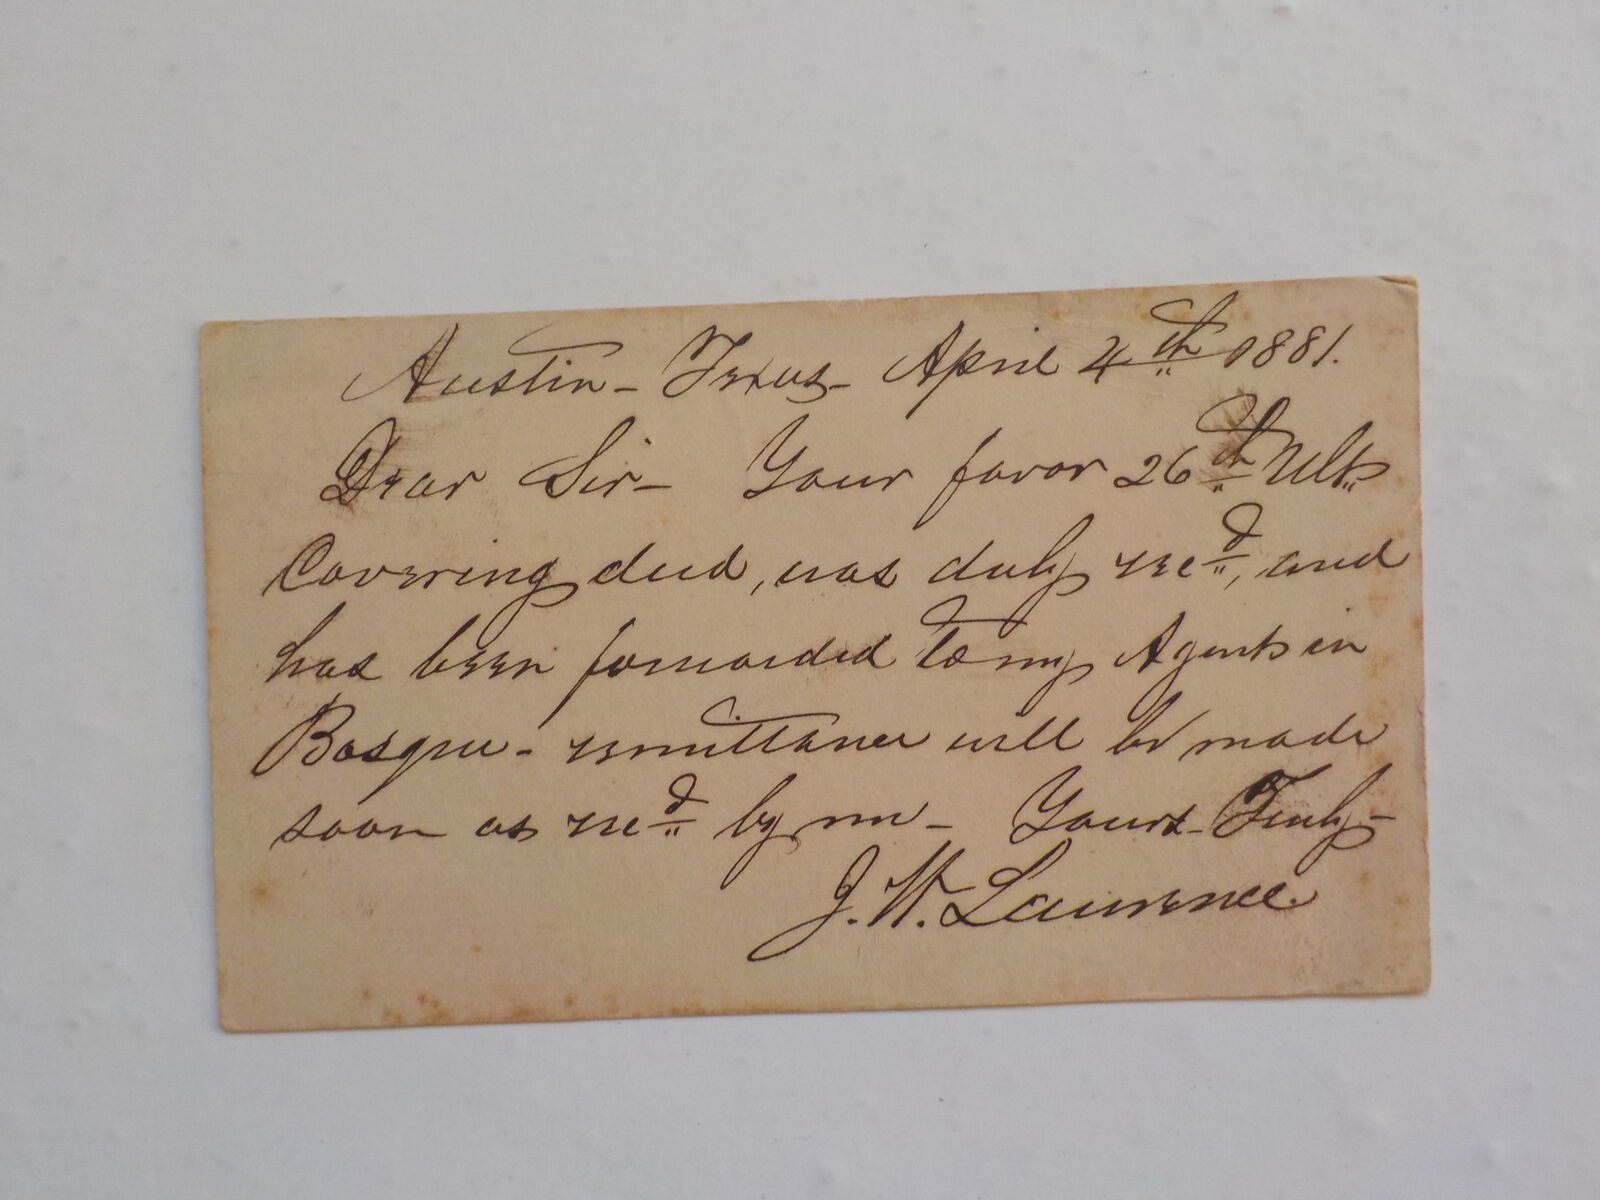 Austin - Texas - April 4th 1881.
Dear Sir - Your favor 26th Ult.
Covering deed, was duly recd, and
has been forwarded to my Agents in
Bosque - remittance will be made
soon as recd by me - Yours Truly -
J. W. Lawrence.